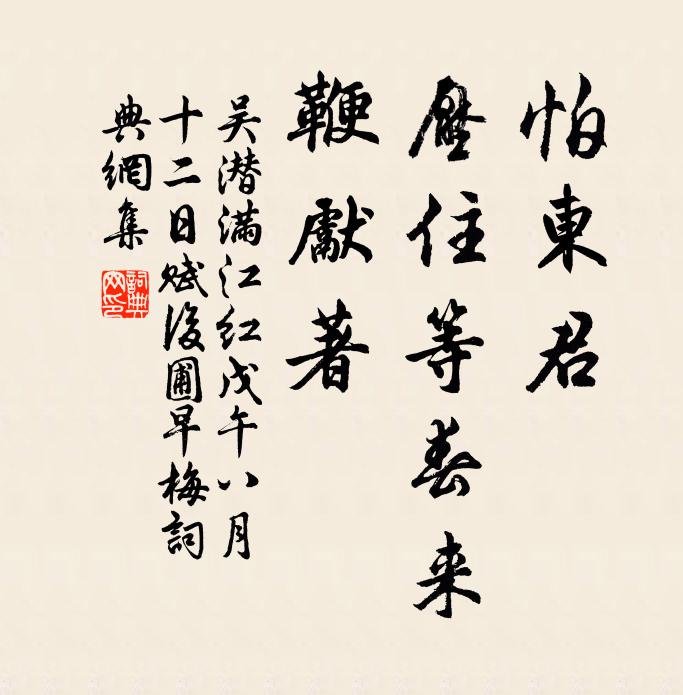 怕東君
壓住等春来
鞭獻著
吴潜滿江红戊午八月
十二日赋後圃早梅詞
典網集
詞典
网印